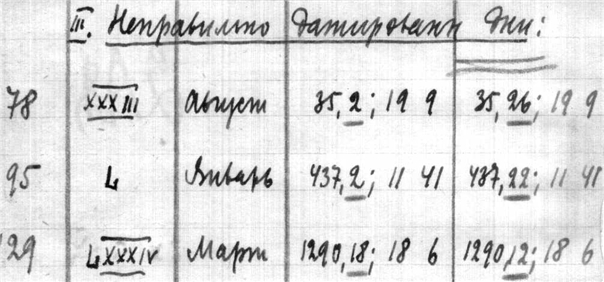 III. Неправильно датирован дни:
78 XXXIII Август 35,2; 19 9 35,26; 19 9
95 L Январь 437,2; 11 41 437,22; 11 41
129 LXXXIV Март 1290,18; 18 6 1290,12; 18 6